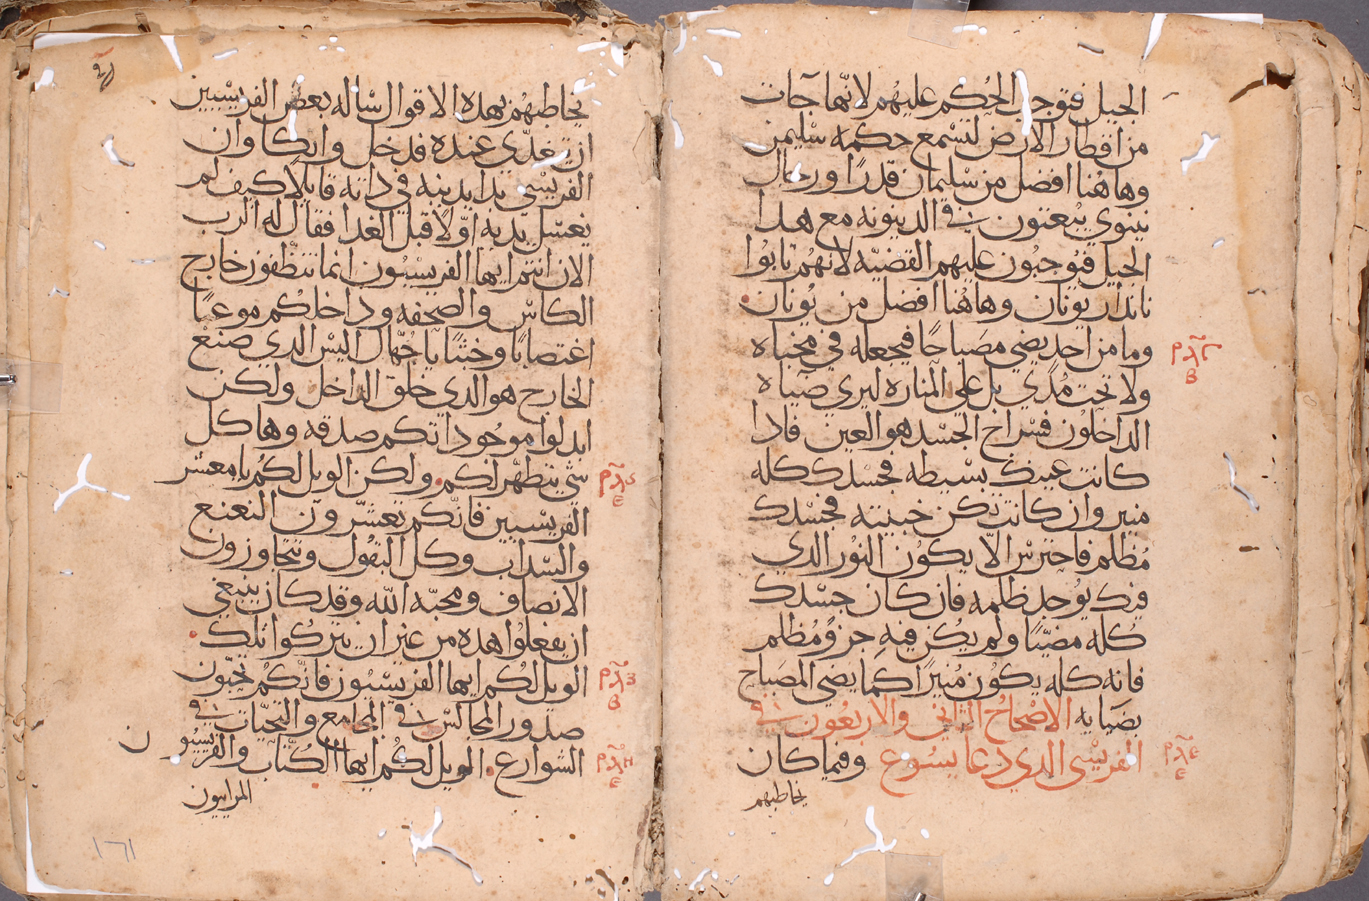 الجيل فتوجب الحكم عليهم لانّها جآت
من اقطار الارض لتسمع حكمة سليمن
وهاهنا افضل من سليمان قدرًا ورجال
نينوي يبعثون في الدينونه مع هدا
الجيل فيوجبون عليهم القضيّه لانهم تابوا
باندار يونان وهاهنا افضل من يونان
وما من احد يضي مصباحًا فيجعله في مخباه
ولا تحت مُدي بل علي المناره ليري ضياه
الداخلون فسراج الجسد هو العين فادا
كانت عينك بسيطه فجسدك كله
منير وان كانت تكن خبيته فجسدك
مُظلم فاحترس الاّ يكون النور الدي
فيك يوجد ظلمه فان كان جسدك
كله مضيًّا ولم يكن فيه جزوٌ مُظلم
فانه كله يكون مُنيرًا كما يضي المصباح
بضيايه الاصحاح الثاني والاربعون في
الفريسي الدي دعا يسوع وفيما كان
يخاطبهم
يخاطبهم بهده الاقوال ساله بعض الفريسيين
ان يتغدّي عنده فدخل واتكا وان
الفريسي بدا يدينه في داته قايلا كيف لم
يغسل يديه اوّلا قبل الغدا فقال له الرب
الان انتم ايها الفريسيون انما تنظفون خارج
الكاس والصحفه وداخلكم موعبًا
اغتصابًا وخبثًا يا جُهّال اليس الدي صنع
الخارج هو الدي خلق الداخل ولكن
ابدلوا موجود اتكم صدقه وها كل
شي يتطهّر لكم ولكن الويل لكم يا معشر
الفريسيين فانّكم تعشّرون النعنع
والسداب وكل البقول وتتجاوزون
الانصاف ومحبّة الله وقد كان ينبغي
ان يفعلوا هده من غير ان يتركوا تلك
الويل لكم ايها الفريسيون فانّكم تحبّون
صدور المجالس في المجامع والتحيّات في
الشوارع الويل لكم ايها الكُتّاب والفريسيون
المراييون
١٦١